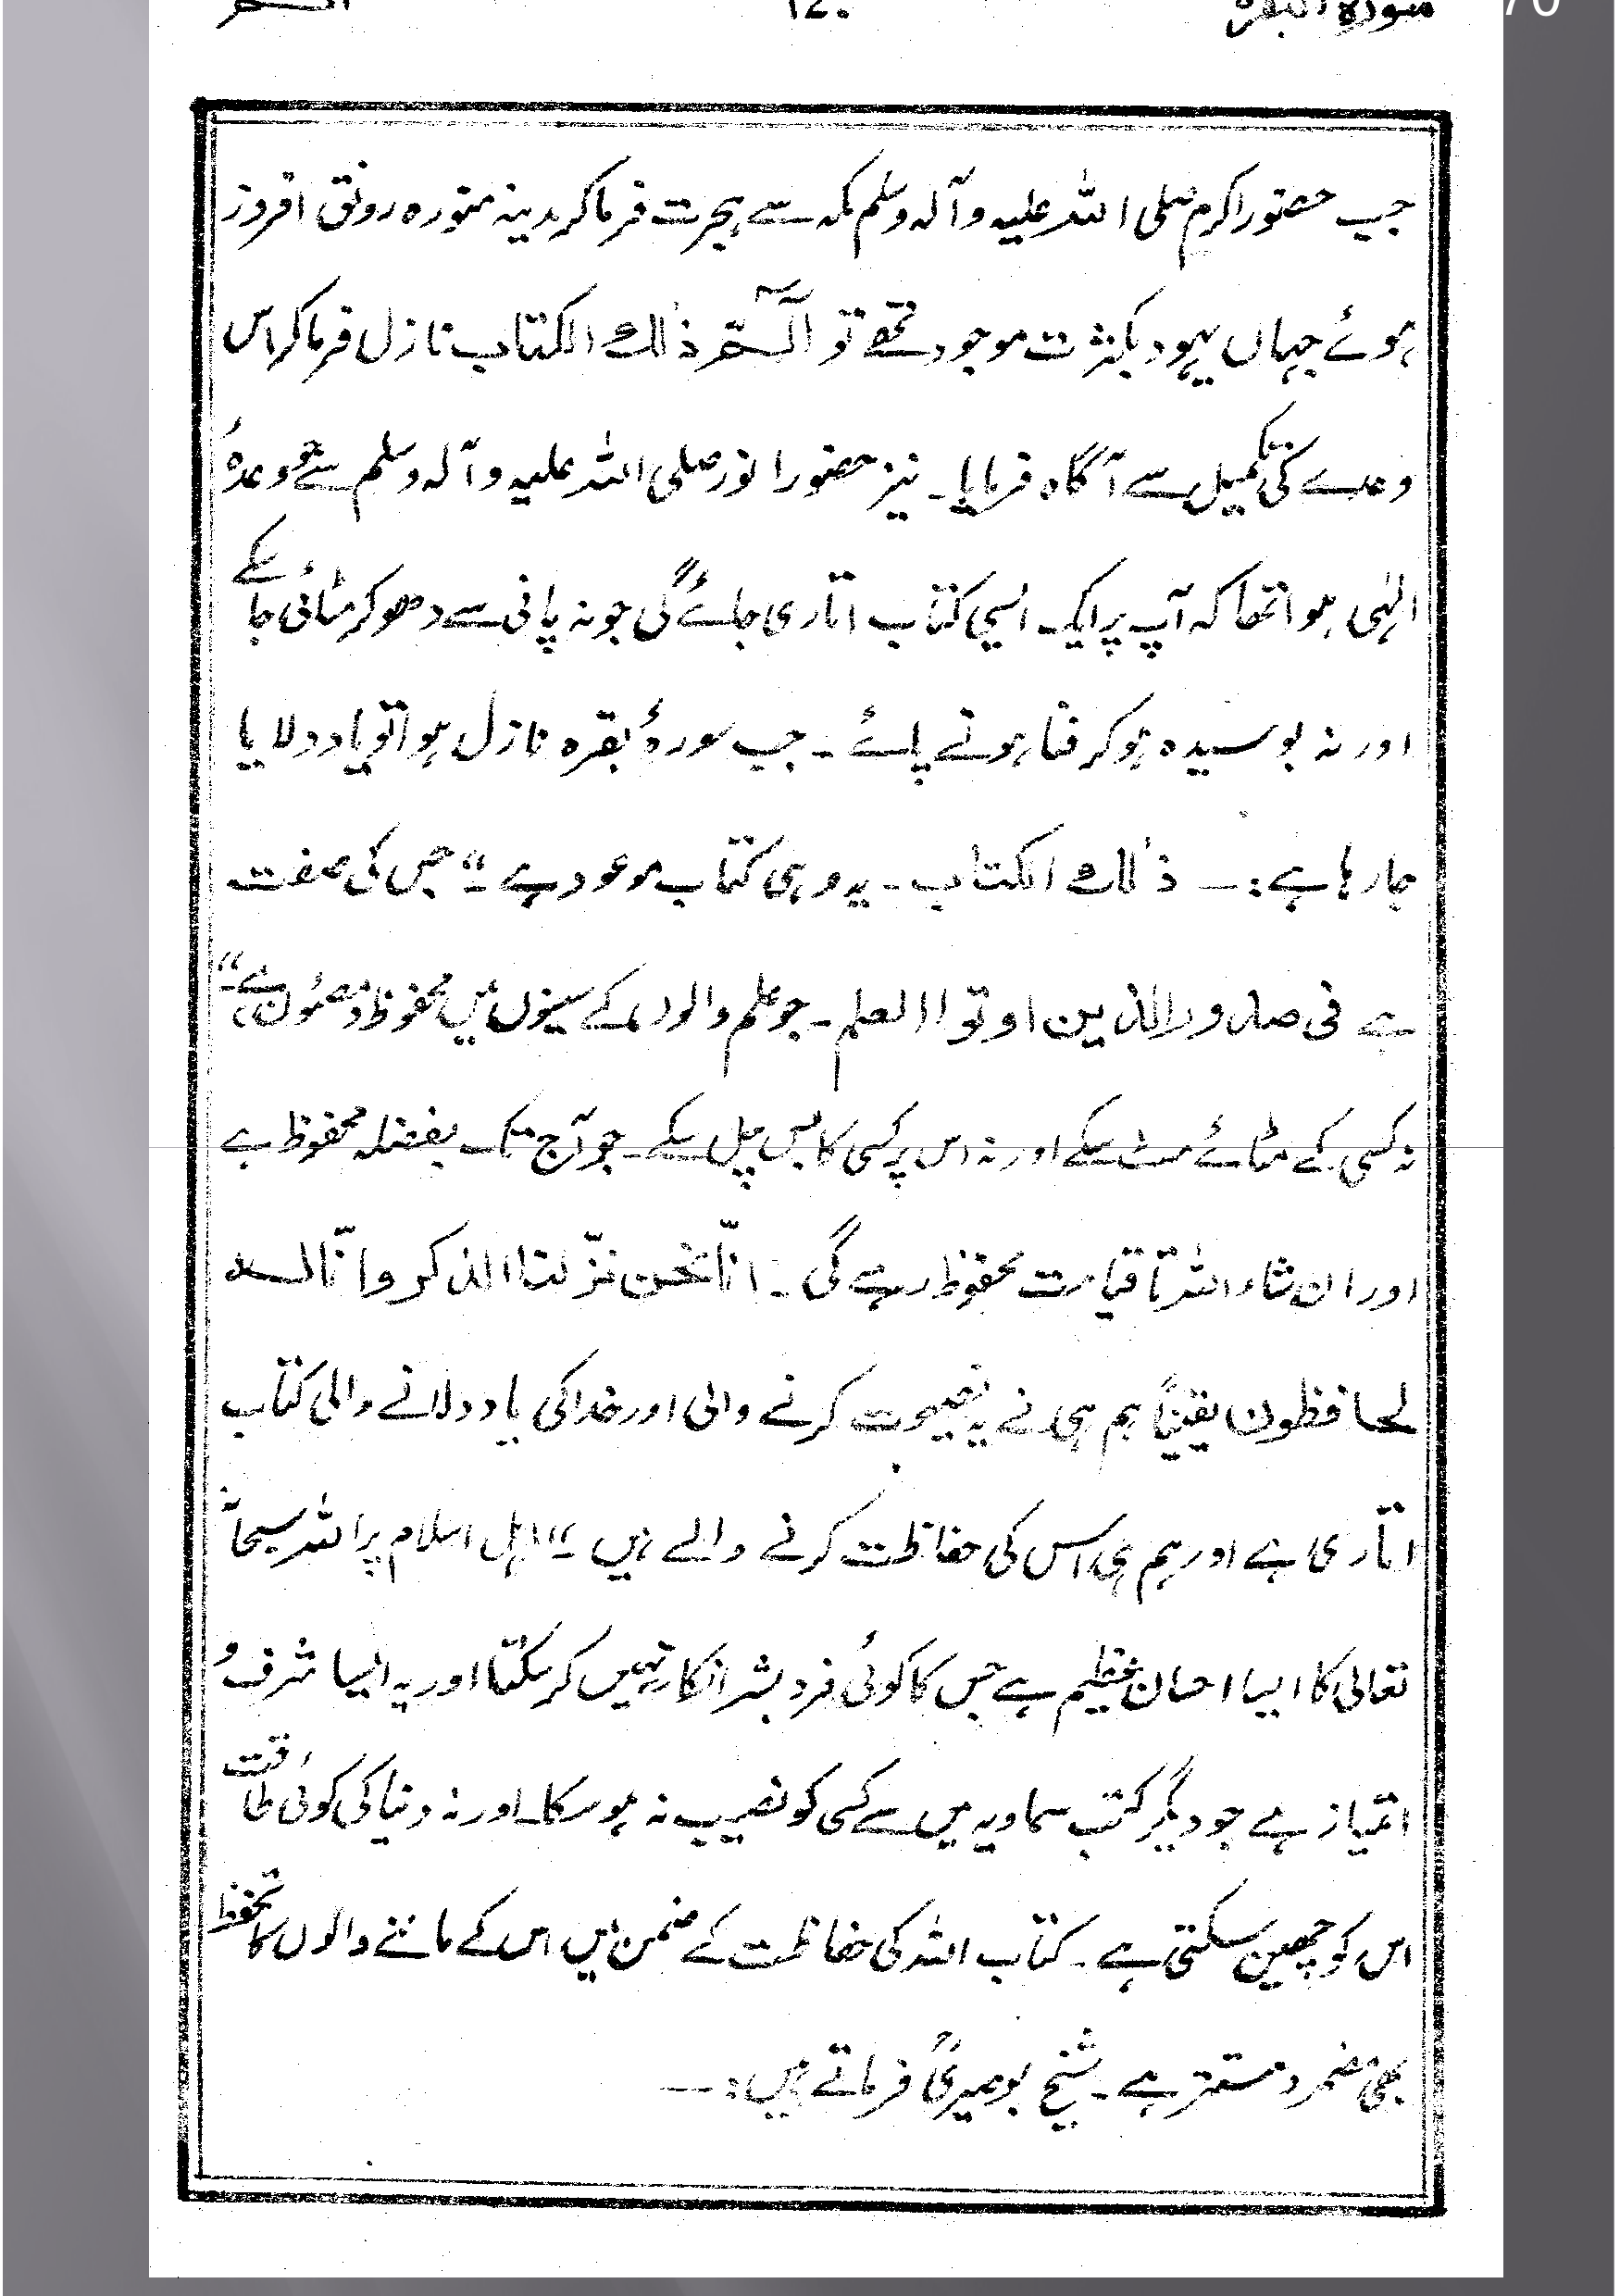 سورۃ البقرہ ۱۷۰ الٓمّٓ
جب حضور اکرم صلی اللہ علیہ وآلہ وسلم مکہ سے ہجرت فرما کر مدینہ منورہ رونق افروز
ہوئے جہاں یہود بکثرت موجود تھے تو الٓمّٓ ذٰلک الکتاب نازل فرما کر اس
وعدے کی تکمیل سے آگاہ فرمایا۔ نیز حضور انور صلی اللہ علیہ وآلہ وسلم سے جو وعدہٗ
الٰہی ہوا تھا کہ آپ پر ایک ایسی کتاب اتاری جائے گی جو نہ پانی سے دھو کر مٹائی جا سکے
اور نہ بوسیدہ ہو کر فنا ہونے پائے ۔ جب سورۂ بقرہ نازل ہوا تو یاد دلایا
جا رہا ہے :— ذٰلک الکتاب۔ یہ وہی کتاب موعود ہے ۔“ جس کی صفت
ہے فی صدور الذین اوتوا العلم۔ جو علم والوں کے سینوں میں محفوظ و مصئون ہے۔“
نہ کسی کے مٹائے مٹ سکے اور نہ اس پر کسی کا بس چل سکے۔ جو آج تک بفضلہ محفوظ ہے
اور ان شاء اللہ تا قیامت محفوظ رہے گی ۔ انّا نحن نزّلنا الذکر وانّا لہ
لحافظون یقیناً ہم ہی نے یہ نصیحت کرنے والی اور خدا کی یاد دلانے والی کتاب
اتاری ہے اور ہم ہی اس کی حفاظت کرنے والے ہیں ۔“ اہل اسلام پر اللہ سبحانہٗ
تعالی کا ایسا احسان عظیم ہے جس کا کوئی فرد بشر انکار نہیں کر سکتا اور یہ ایسا شرف و
امتیاز ہے جو دیگر کتب سماویہ میں سے کسی کو نصیب نہ ہو سکا۔ اور نہ دنیا کی کوئی طاقت
اس کو چھین سکتی ہے ۔ کتاب اللہ کی حفاظت کے ضمن میں اس کے ماننے والوں کا تحفظ
بھی مضمر و مستتر ہے ۔ شیخ بوصیریؒ فرماتے ہیں :—